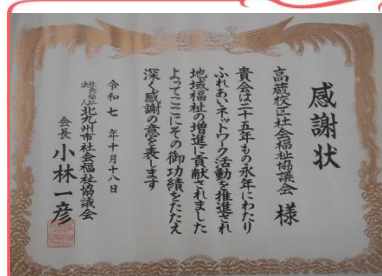 感謝状
高蔵校区社会福祉協議会 様
貴会は二十五年もの永年にわたり
ふれあいネットワーク活動を推進され
地域福祉の増進に貢献されました
よってここにその御功績をたたえ
深く感謝の意を表します
令和七年十月十八日
社会福祉法人 北九州市社会福祉協議会
会長 小林一彦